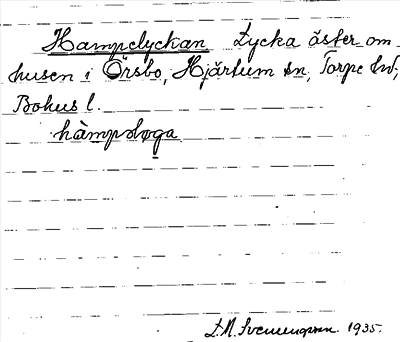 Hampelyckan Lycka öster om
husen i Örsbo, Hjärtum sn, Torpe hd,
Bohus l.
hàmpsløga
1935.